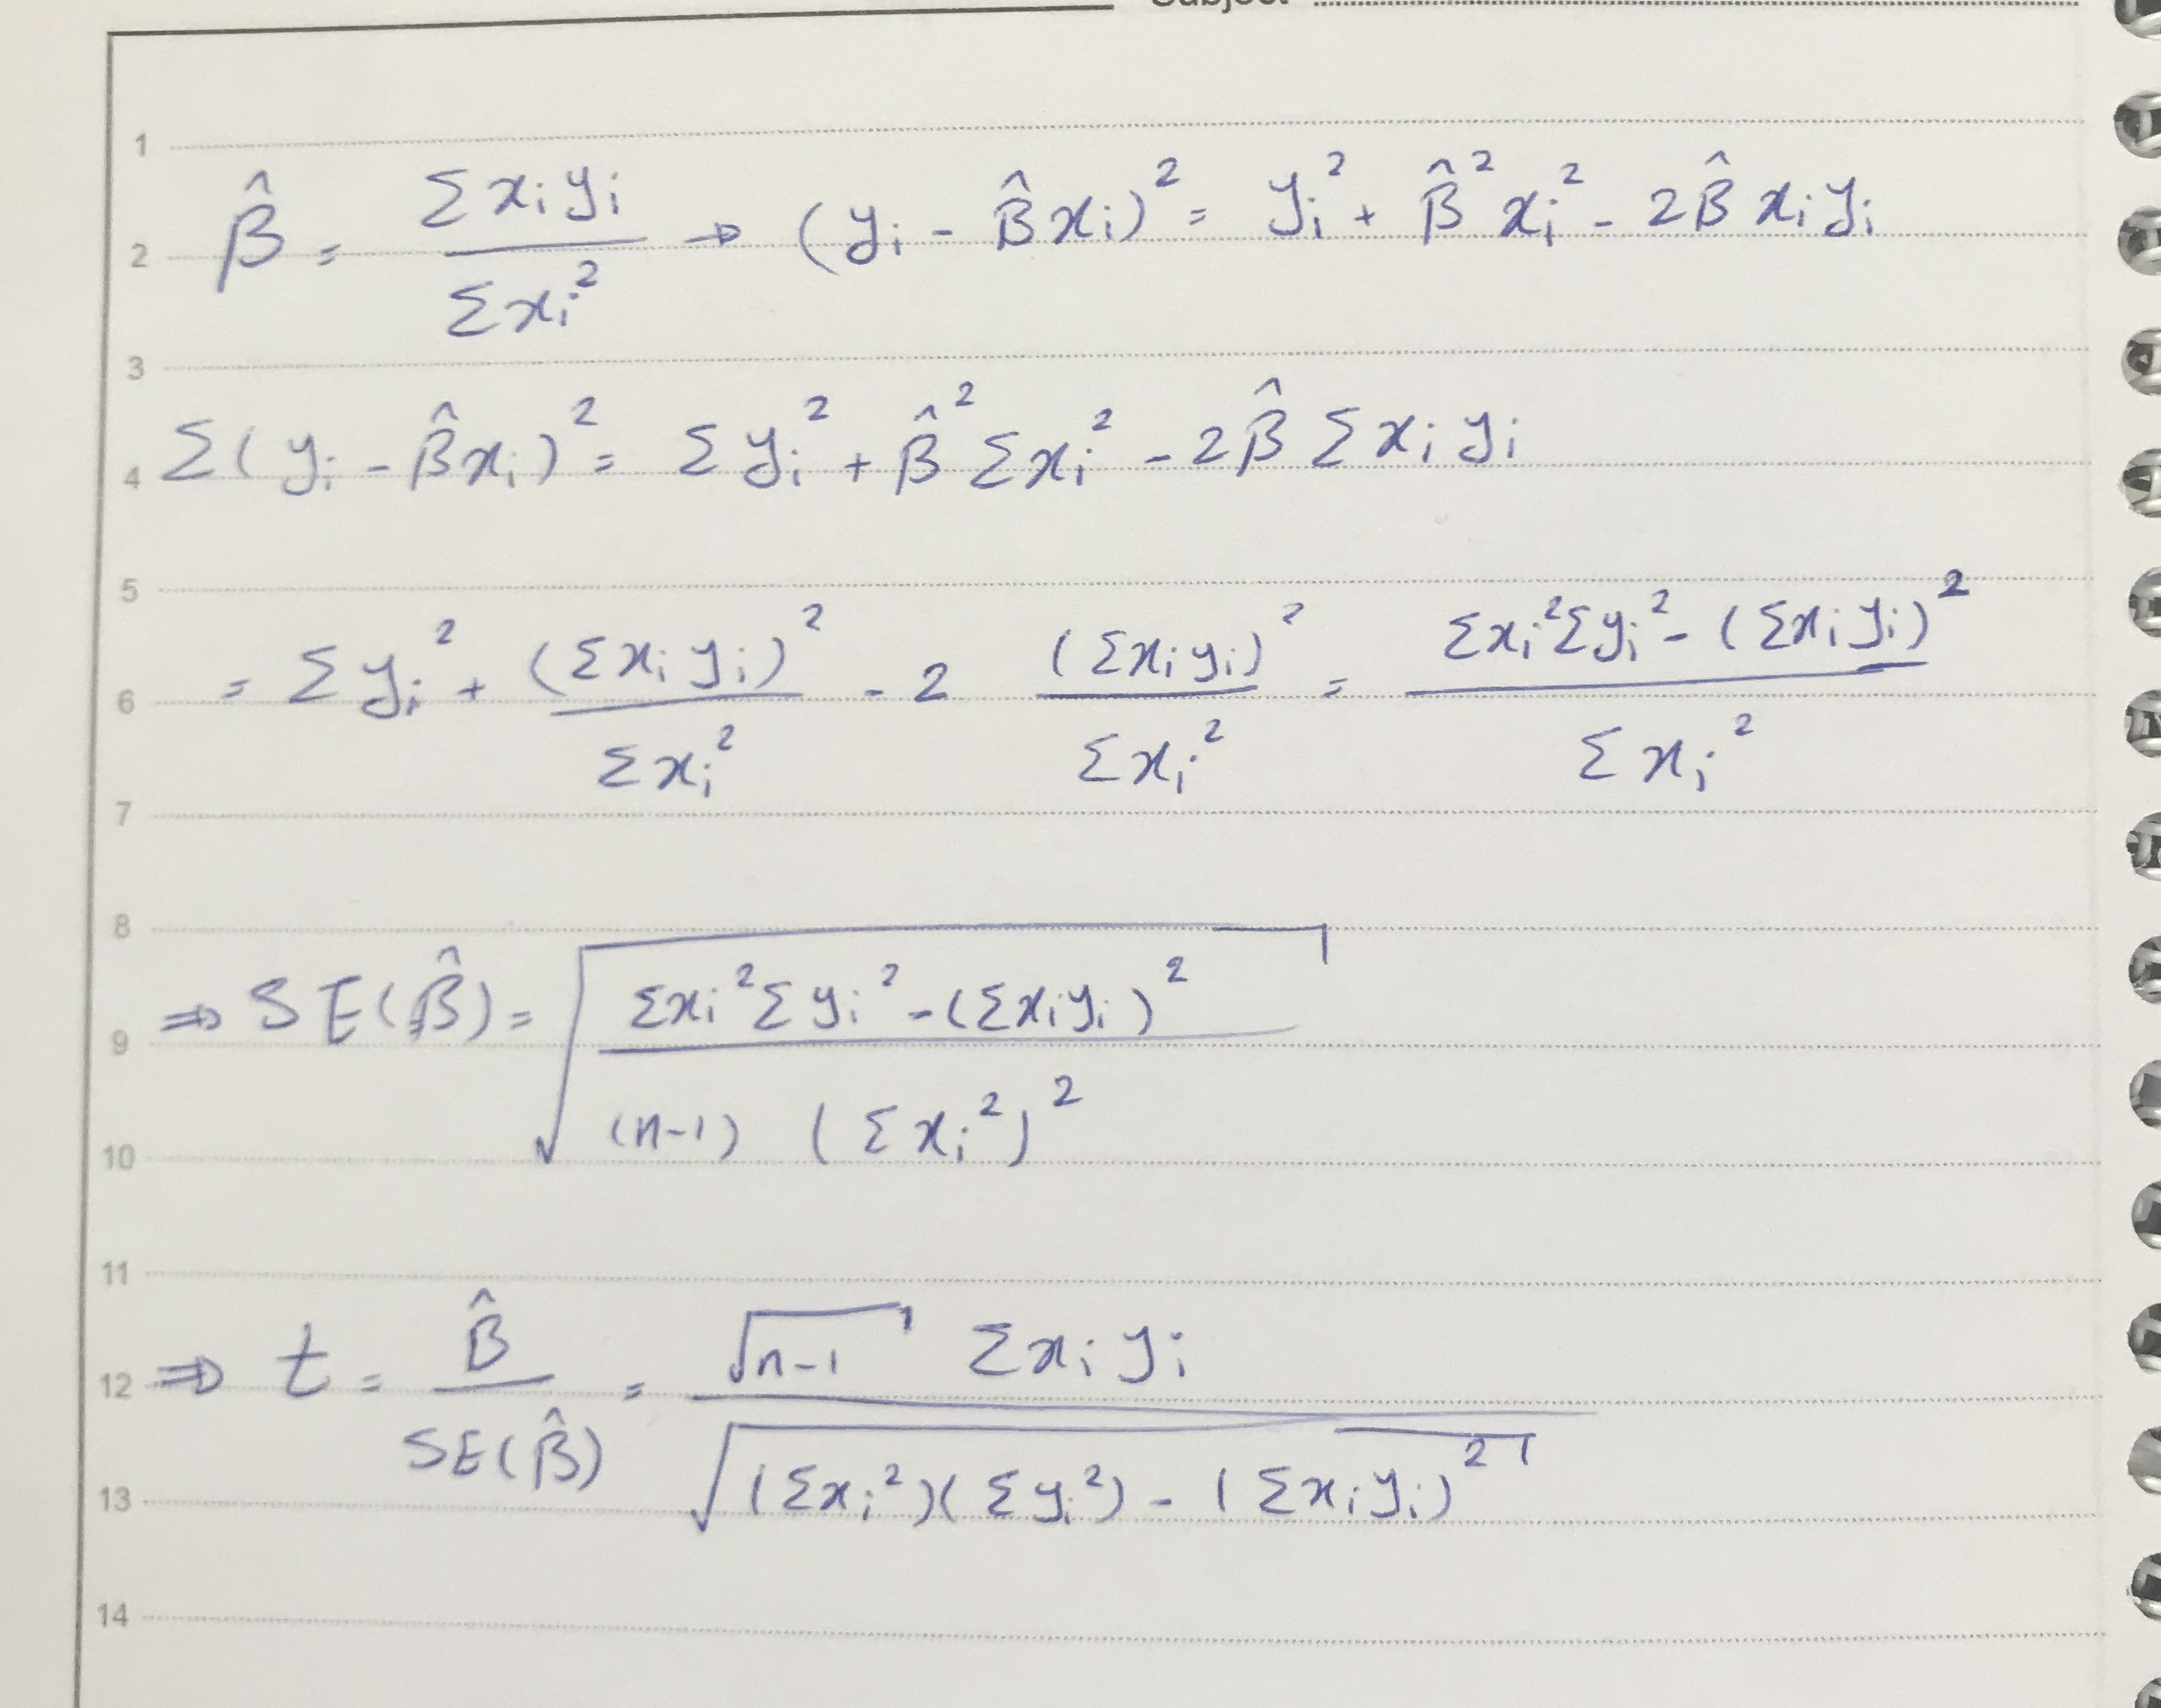 Subject
1
2 β̂ = Σxᵢyᵢ / Σxᵢ² → (yᵢ - β̂xᵢ)² = yᵢ² + β̂²xᵢ² - 2β̂xᵢyᵢ
3
4 Σ(yᵢ - β̂xᵢ)² = Σyᵢ² + β̂²Σxᵢ² - 2β̂Σxᵢyᵢ
5
6 = Σyᵢ² + (Σxᵢyᵢ)² / Σxᵢ² - 2 (Σxᵢyᵢ)² / Σxᵢ² = Σxᵢ²Σyᵢ² - (Σxᵢyᵢ)² / Σxᵢ²
7
8
9 ⇒ SE(β̂) = √(Σxᵢ²Σyᵢ² - (Σxᵢyᵢ)² / (n-1) (Σxᵢ²)²)
10
11
12 ⇒ t = β̂ / SE(β̂) = √(n-1) Σxᵢyᵢ / √((Σxᵢ²)(Σyᵢ²) - (Σxᵢyᵢ)²)
13
14